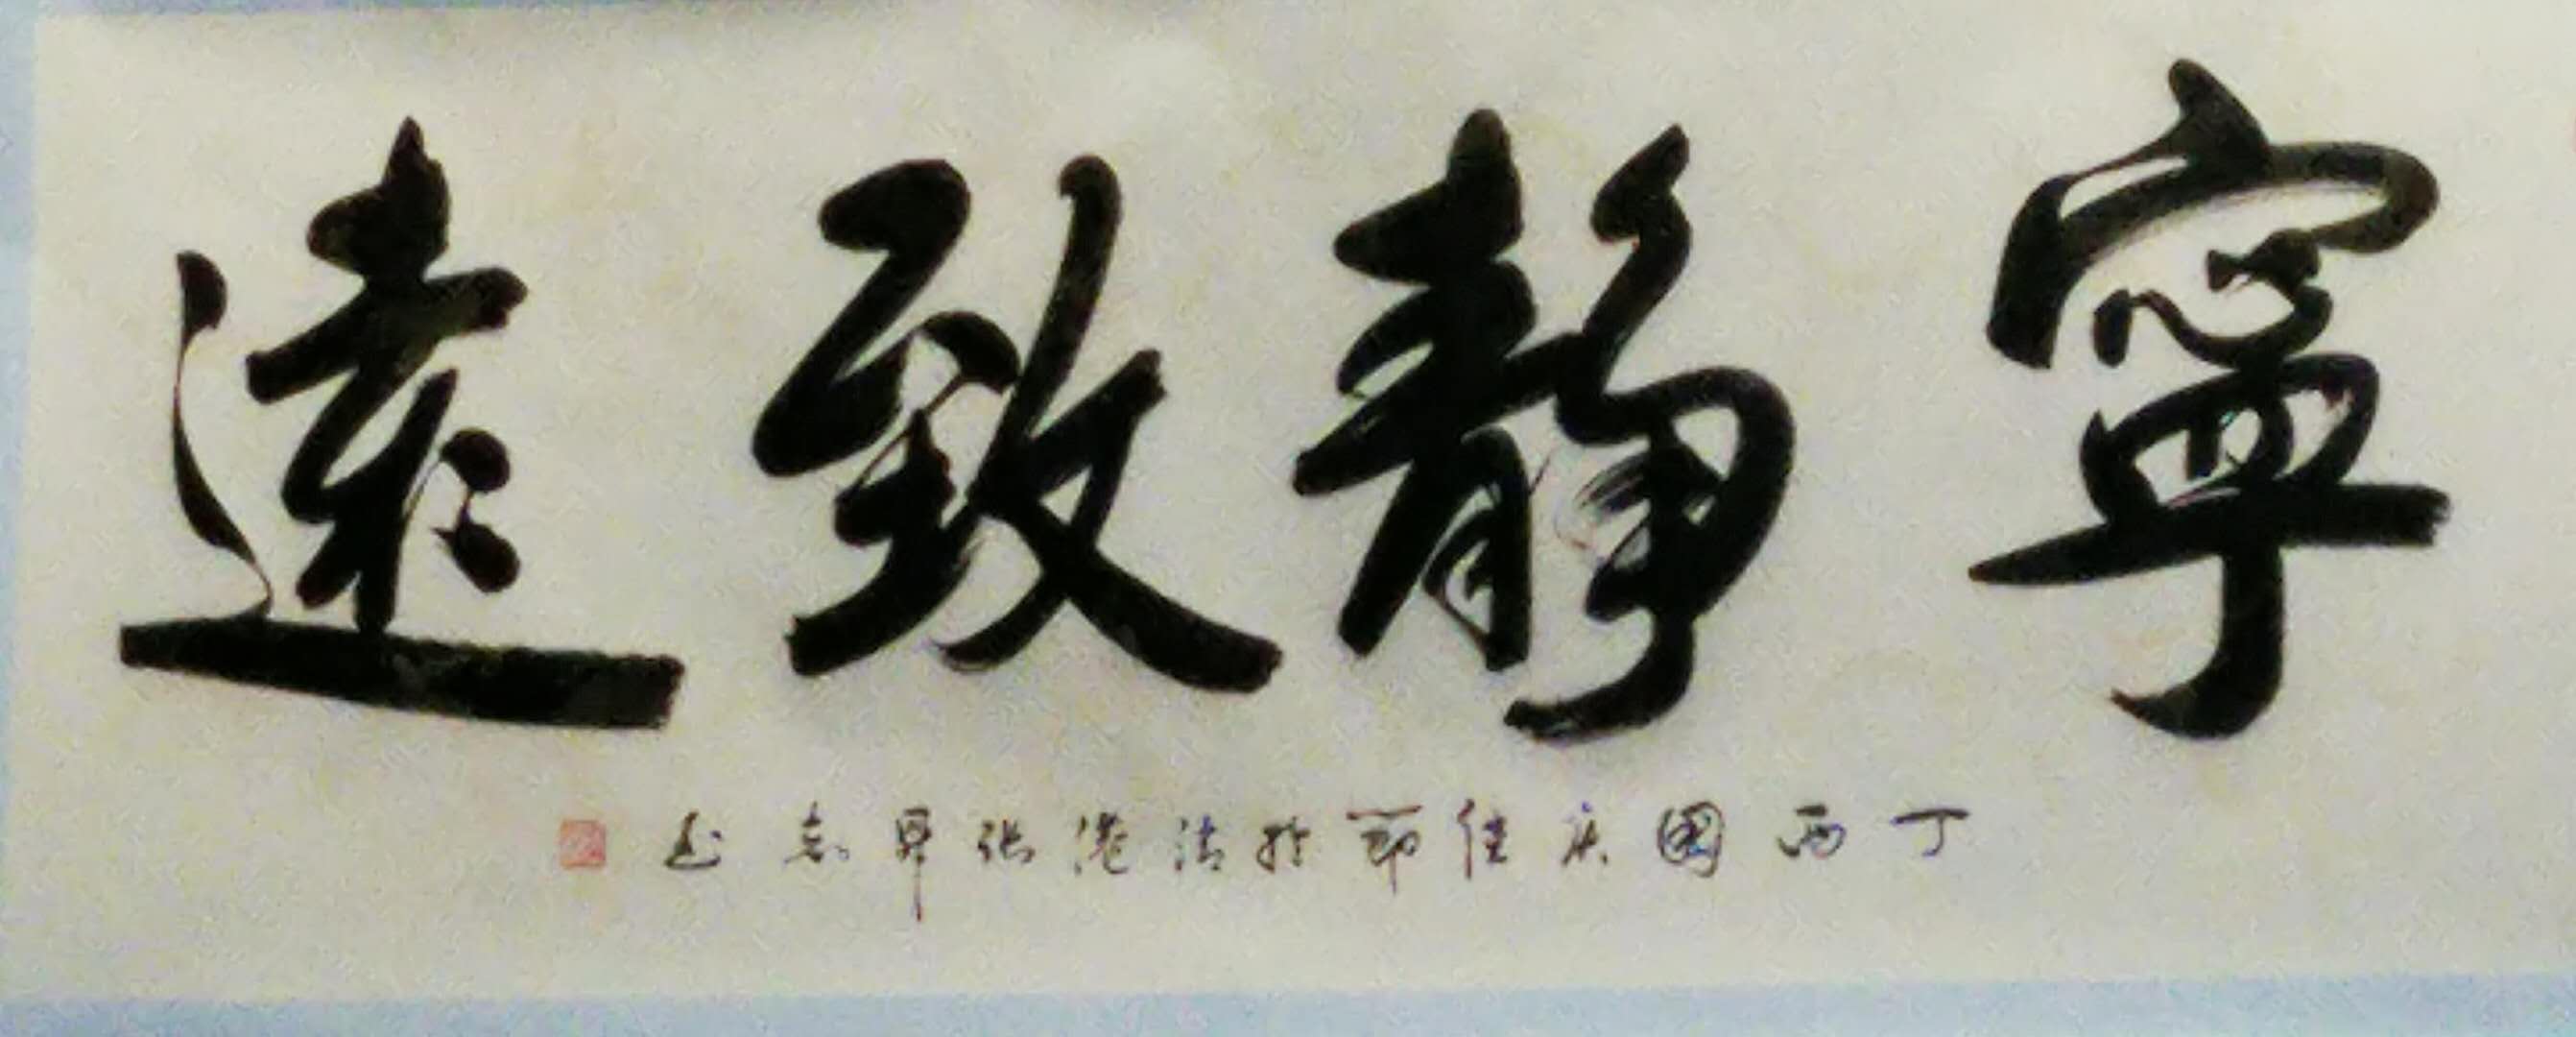 寧靜致遠
丁酉國庆佳節於清港張昇志書